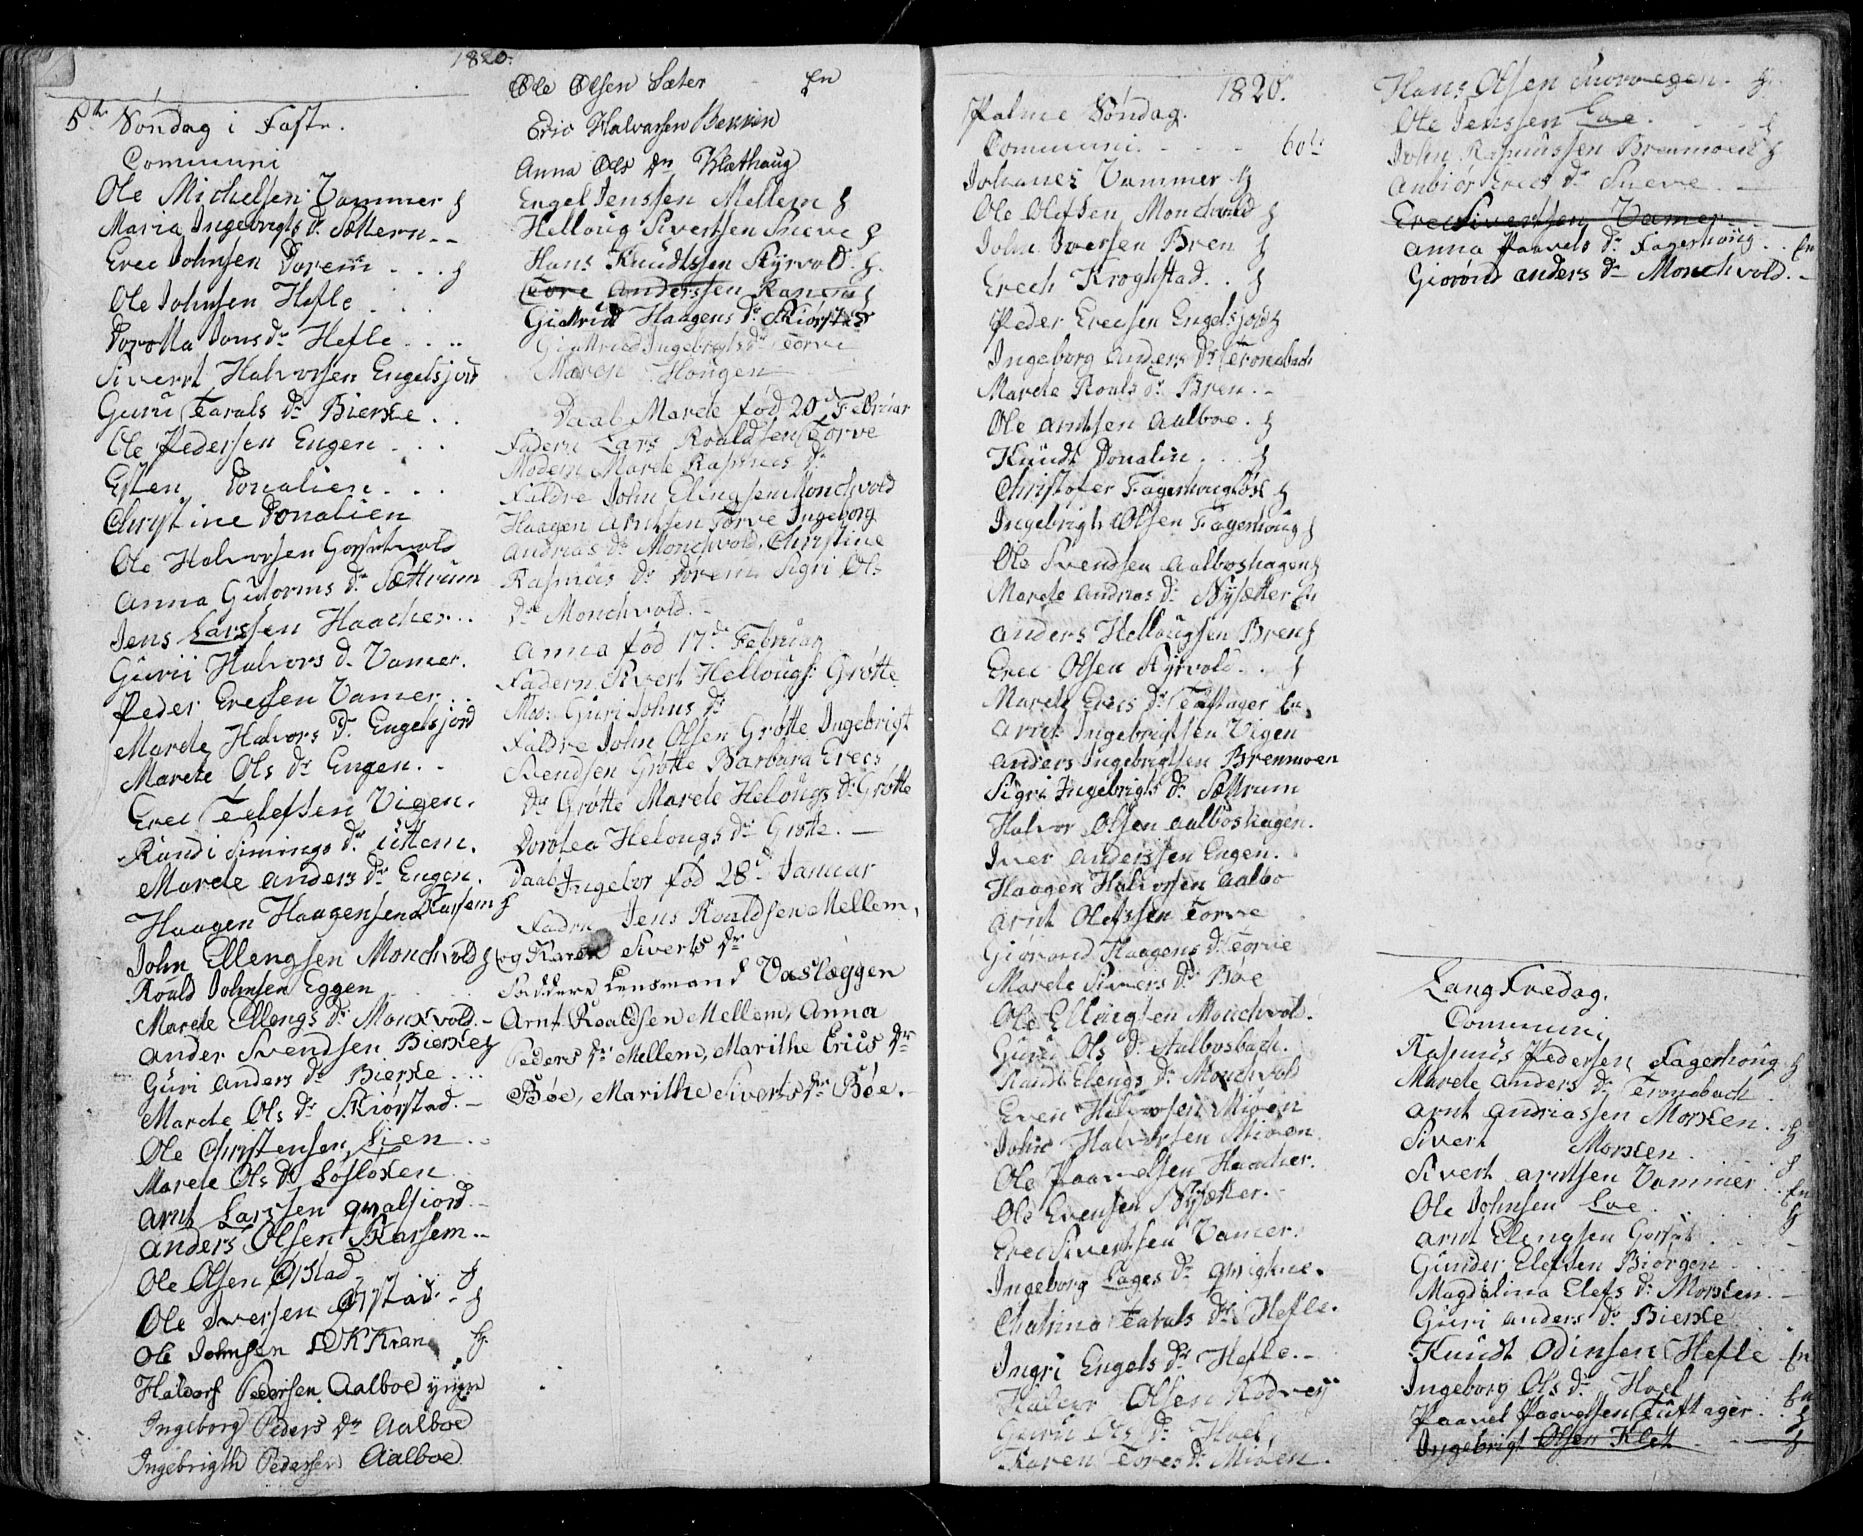 1820.
5te Søndag i Faste.
Communi
Ole Michelsen Vammer
Maria Ingebrigts Dr Sættern
Erec Johnsen Dorem
Ole Johnsen Hefle
Dorotta Jons Dr Hefle
Sivert Halvorsen Engelsjord
Guru Tarals Dr Bierke
Ole Pedersen Engen
Esten Donalien
Christine Donalien
Ole Halvorsen
Anna Gutorms Dr Sættrum
Jens Larssen Haacher
Gurii Halvors Dr Vamer.
Peder Erecsen Vamer
Marete Halvors Dr Engelsjord
Marete Ols Dr Engen.
Erec Telefsen Vigen.
Randi Simings Dr Uttem.
Marete Anders Dr Engen.
Haagen Haagensen Karsem
John Ellengsen Monchvold
Roald Johnsen Eggen
Marete Ellengs Dr Monkvold.
Ander Svendsen Bierke
Guri Anders Dr Bierke
Marete Ols Dr Skiørstad.
Ole Christensen Lien
Marete Ols Dr Løsloken
Arnt Larssen qvalsiord
Anders Olsen Karsem
Ole Olsen Øfstad
Ole Iversen Øfstad
Ole Johnsen Kran
Haldors Pedersen Aalboe yngre
Ingeborg Peders Dr Aalboe
Ingebrigth Pedersen Aalboe
Ole Olsen Sæter
Eric Halvorsen Bekken
Anna Ols Dr Klæthaug
Engel Jenssen Mellem
Helloug Sivertsen Sneve
Hans Knudtssen Kyrvold
Tore Anderssen Ranem
Giertrud Haagens Dr Skiørstad
Giertrud Ingebrigts Dr Torve
Maren Hougen
Daab Marete fød 20de Februar
Fadern Lars Roaldsen Torve
Modern Marete Rasmus Dr
Faddre John Elingsen Monchvold
Haagen Arntsen Torve Ingeborg
Andrias Dr Monchvold, Christine
Rasmus Dr Dorem Sigri Ols
Dr Monchvold.
Anna fød 17de Februar
Fadern Sivert Hellougs: Grøtte
Mod: Guri Johns Dr
Faldre John Olsen Grøtte Ingebrigt
Svendsen Grøtte Barbara Erecs
Dr Grøtte Marete Helougs Dr Grøtte
Dorotea Helougs Dr Grøtte.
Daab Ingebor fød 28de Januar
Fadrn Jens Roaldsen Mellem,
og Karen Siverts Dr
Faddere Lensmand Vaslæggen
Arnt Roaldsen Mellem, Anna
Peders Dr Mellem, Marithe Erics Dr
Bøe, Marithe Siverts Dr Bøe.
1820.
Palme Søndag.
Communi. 60
Johanes Vammer
Ole Olefsen Monchvold
John Iversen Bren
Erech Kroghstad
Peder Erecsen Engelsjord
Ingeborg Anders Dr Tronsbach
Marete Roals Dr Bren.
Ole Arntsen Aalboe.
Knudt Donalin
Christofer Fagerhoug
Ingebrigt Olsen Fagerhoug
Ole Svendsen Aalboshagen
Marete Andrias Dr Nysætter
Anders Hellougsen Bren
Erec Olsen Kyrvold
Marete Erecs Dr Tuftager
Arnt Ingebrigtsen Vigen
Anders Ingebrigtsen Brenmoen
Sigri Ingebrigts Dr Sættrum
Halvor Olsen Aalboshagen.
Iver Anderssen Engen.
Haagen Halvorsen Aalbo
Arnt Olefssen Torve
Giørond Haagens Dr Torve
Marete Sivers Dr Bøe
Ole Ellingsen Monchvol.
Guru Ols Dr Aalbosbach.
Randi Elengs Dr Monchvold
Even Halvorsen Mioen
John Halvorsen Mioen
Ole Paavelsen Haacher.
Ole Evensen Nysætter.
Erec Sivertsen Vamer.
Ingeborg Lages Dr qvigkne.
Chatrina Tarals Dr Hefle.
Ingri Engels Dr Hefle.
Halvor Olsen Rodvej
Guru Ols Dr Hoel
Karen Tores Dr Mioen.
Hans Olsen
Ole Jenssen Loe
John Rasmussen Brenmoen
Anbiør Erecs Dr Sneve
Erec Sivertsen Vamer
Anna Paavels Dr Fagerhoug
Giørond Anders Dr Monchvold.
Lang Fredag.
Communi
Rasmus Pedersen Fagerhoug
Marete Anders Dr Tronsbach
Arnt Andriassen Morken
Sivert Morken
Sivert Arntsen Vammer
Ole Johnsen Loe
Arnt Elengsen
Gunder Elefsen Biørgen
Magdalina Elefs Dr Morken.
Guri Anders Dr Bierke
Knudt Odinsen Hefle
Ingeborg Ols Dr Hoel
Paavel Paavelsen Tuftager
Ingebrigt Olsen Klet